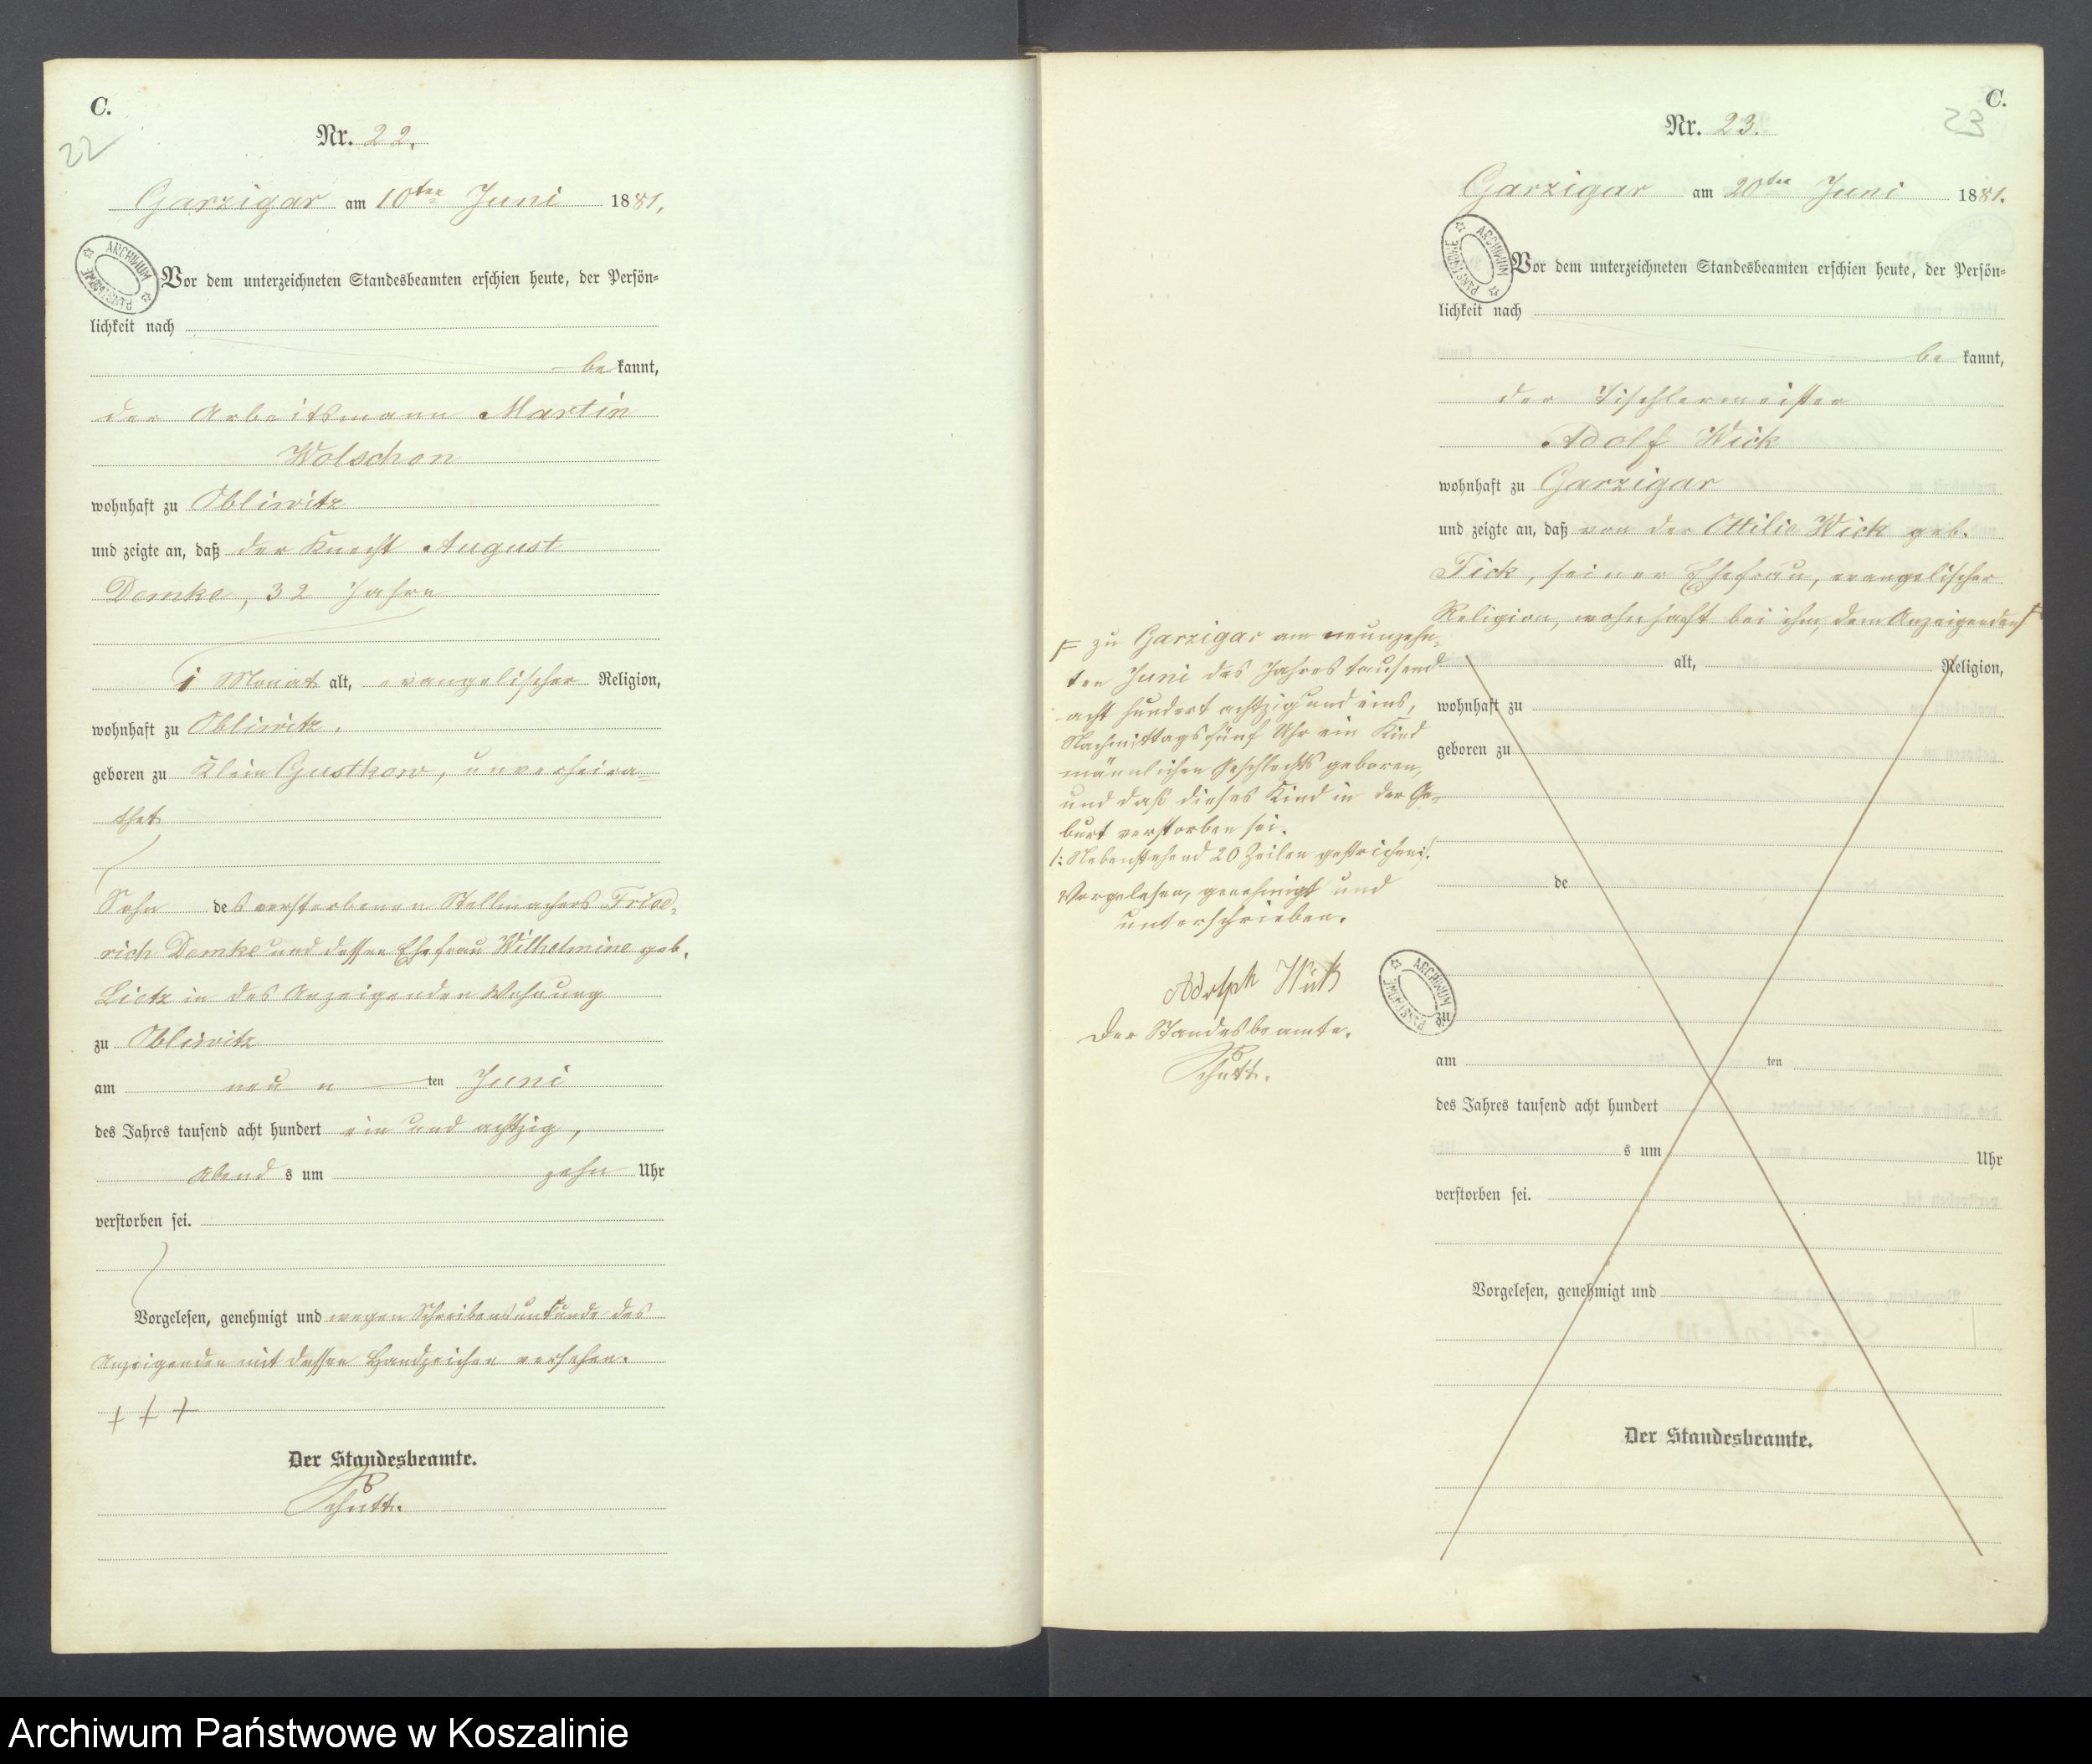 C.
22
Nr. 22.
Garzigar am 10ten Juni 1881.
ARCHIWUM PAŃSTWOWE
Vor dem unterzeichneten Standesbeamten erschien heute, der Persön-
lichkeit nach
be kannt,
der Arbeitsmann Martin
Wolschon
wohnhaft zu Obliwitz
und zeigte an, daß der Knecht August
Demke, 32 Jahre
1 Monat alt, evangelischer Religion,
wohnhaft zu Obliwitz.
geboren zu Klein Gustkow, unverheira-
thet
Sohn des verstorbenen Stellmachers Fried-
rich Demke und dessen Ehefrau Wilhelmine geb.
Lietz in des Anzeigenden Wohnung
zu Obliwitz
am neun ten Juni
des Jahres tausend acht hundert ein und achtzig,
Abend s um zehn Uhr
verstorben sei.
Vorgelesen, genehmigt und wegen Schreibensunkunde des
Anzeigenden mit dessen Handzeichen versehen.
+ + +
Der Standesbeamte.
Schütt.
C.
23
Nr. 23.
Garzigar am 20ten Juni 1881.
ARCHIWUM PAŃSTWOWE
Vor dem unterzeichneten Standesbeamten erschien heute, der Persön-
lichkeit nach
be kannt,
der Tischlermeister
Adolf Wick
wohnhaft zu Garzigar
und zeigte an, daß von der Ottilie Wick geb.
Fick, seiner Ehefrau, evangelischer
Religion, wohnhaft bei ihm, dem Anzeigenden
zu Garzigar am neunzehn-
ten Juni des Jahres tausend
acht hundert achtzig und eins,
Nachmittags fünf Uhr ein Kind
männlichen Geschlechts geboren,
und daß dieses Kind in der Ge-
burt verstorben sei.
/: Nebenstehend 20 Zeilen gestrichen :/.
Vorgelesen, genehmigt und
unterschrieben.
Adolph Wick
Der Standesbeamte.
Schütt.
ARCHIWUM PAŃSTWOWE
alt, Religion,
wohnhaft zu
geboren zu
de
zu
am ten
des Jahres tausend acht hundert
s um Uhr
verstorben sei.
Vorgelesen, genehmigt und
Der Standesbeamte.
Archiwum Państwowe w Koszalinie